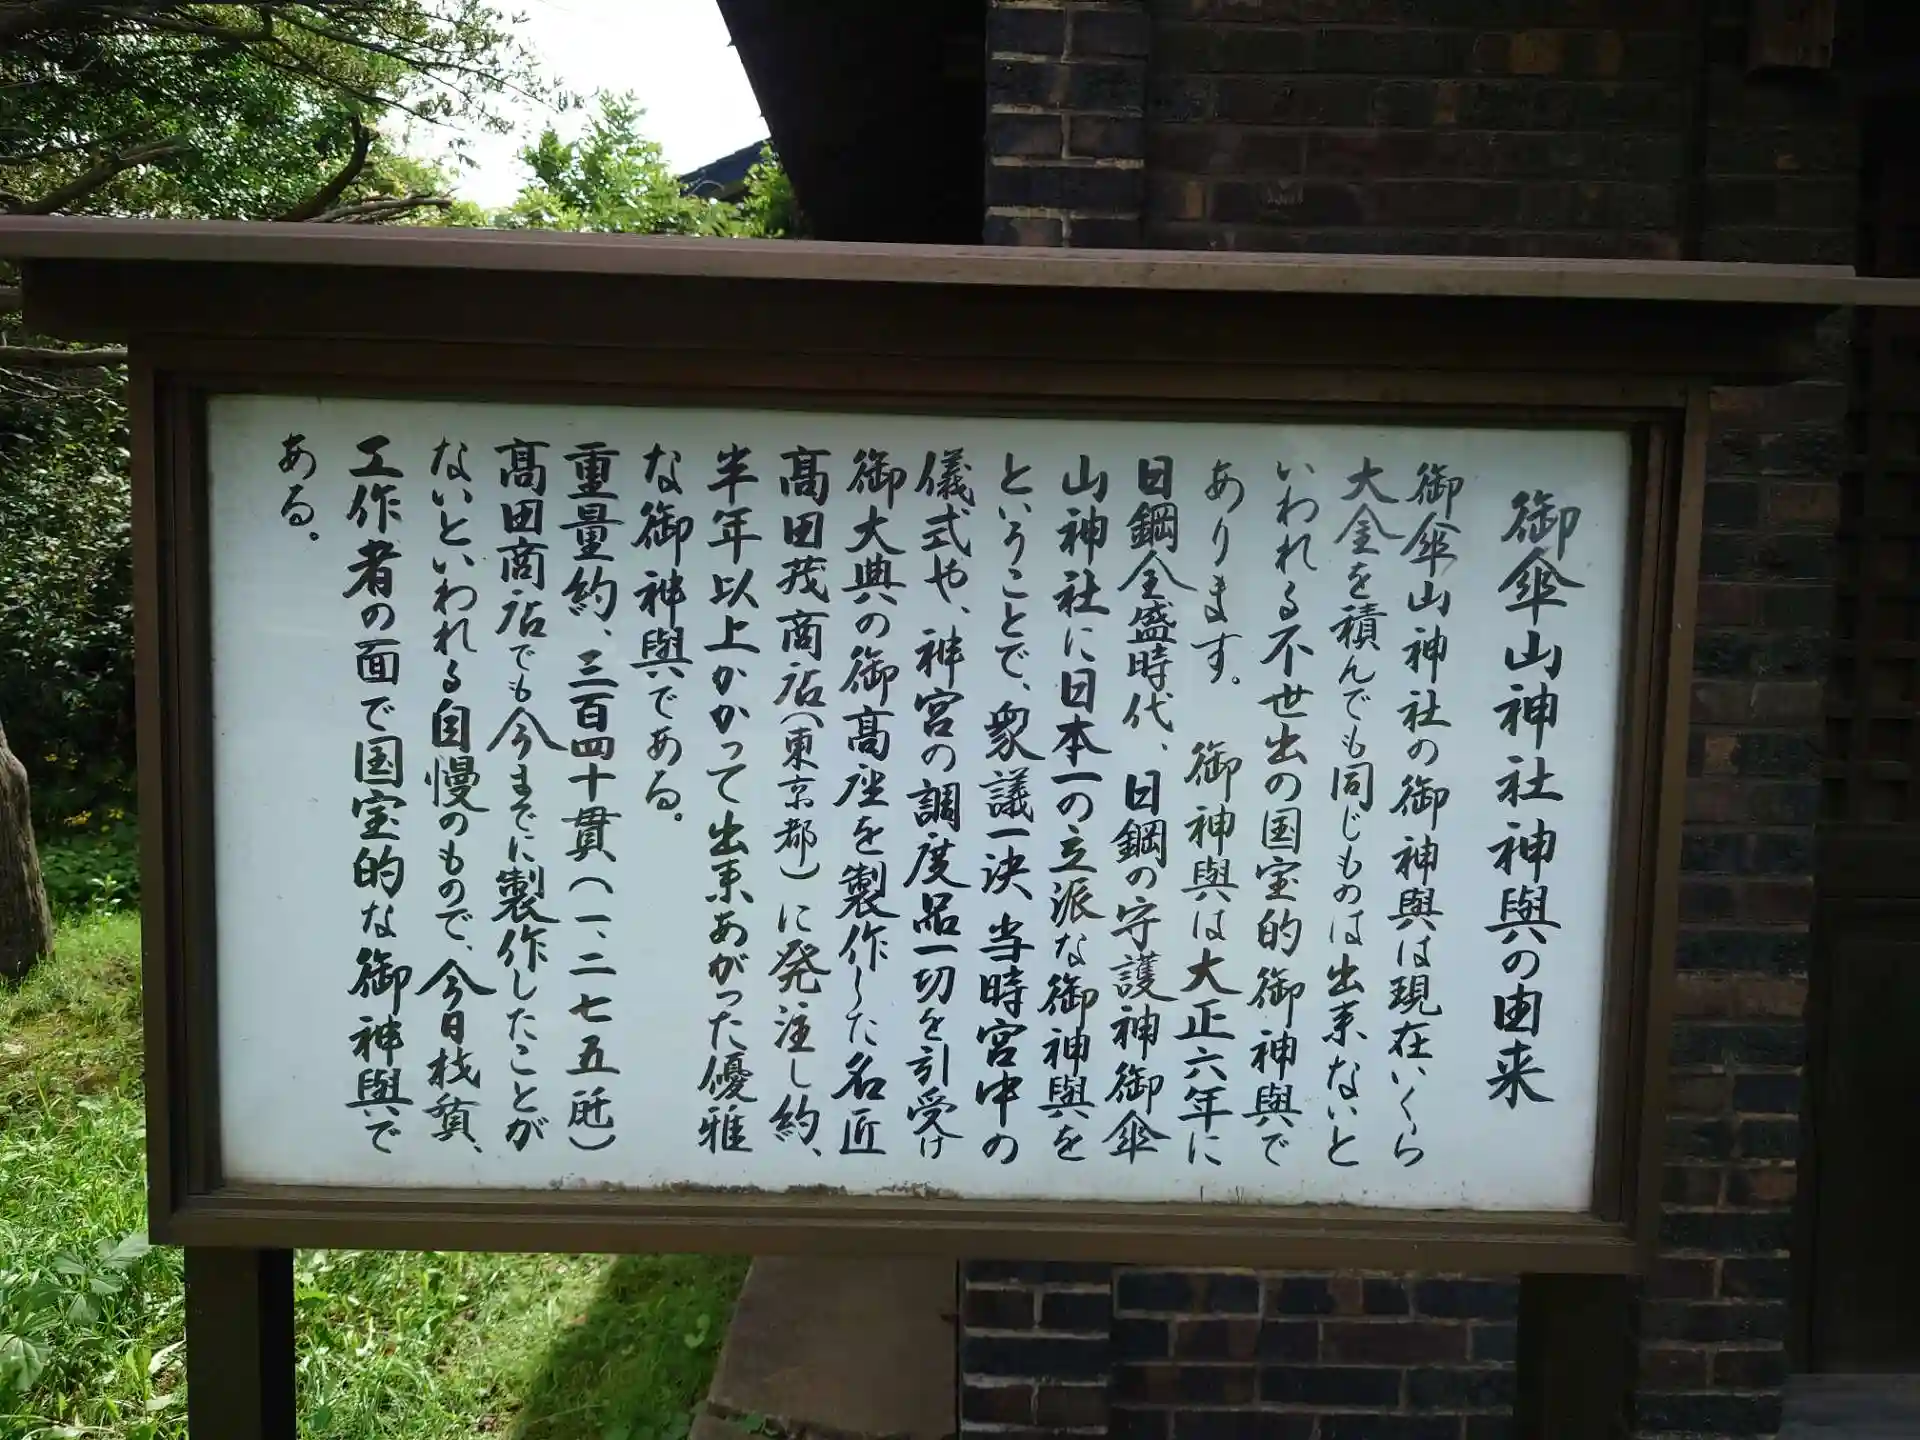 御傘山神社神輿の由来
御傘山神社の御神輿は現在いくら
大金を積んでも同じものは出来ないと
いわれる不世出の国宝的御神輿で
あります。 御神輿は大正六年に
日鋼全盛時代、日鋼の守護神御傘
山神社に日本一の立派な御神輿を
ということで、衆議一決 当時宮中の
儀式や、神宮の調度品一切を引受け
御大典の御髙座を製作した名匠
髙田茂商店(東京都)に発注し約、
半年以上かかって出来あがった優雅
な御神輿である。
重量約、三百四十貫(一、二七五瓩)
髙田商店でも今までに製作したことが
ないといわれる自慢のもので、今日材質、
工作者の面で国宝的な御神輿で
ある。